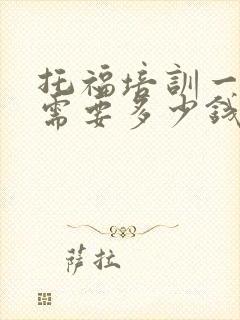 托福培訓一
需要多少錢
萨拉